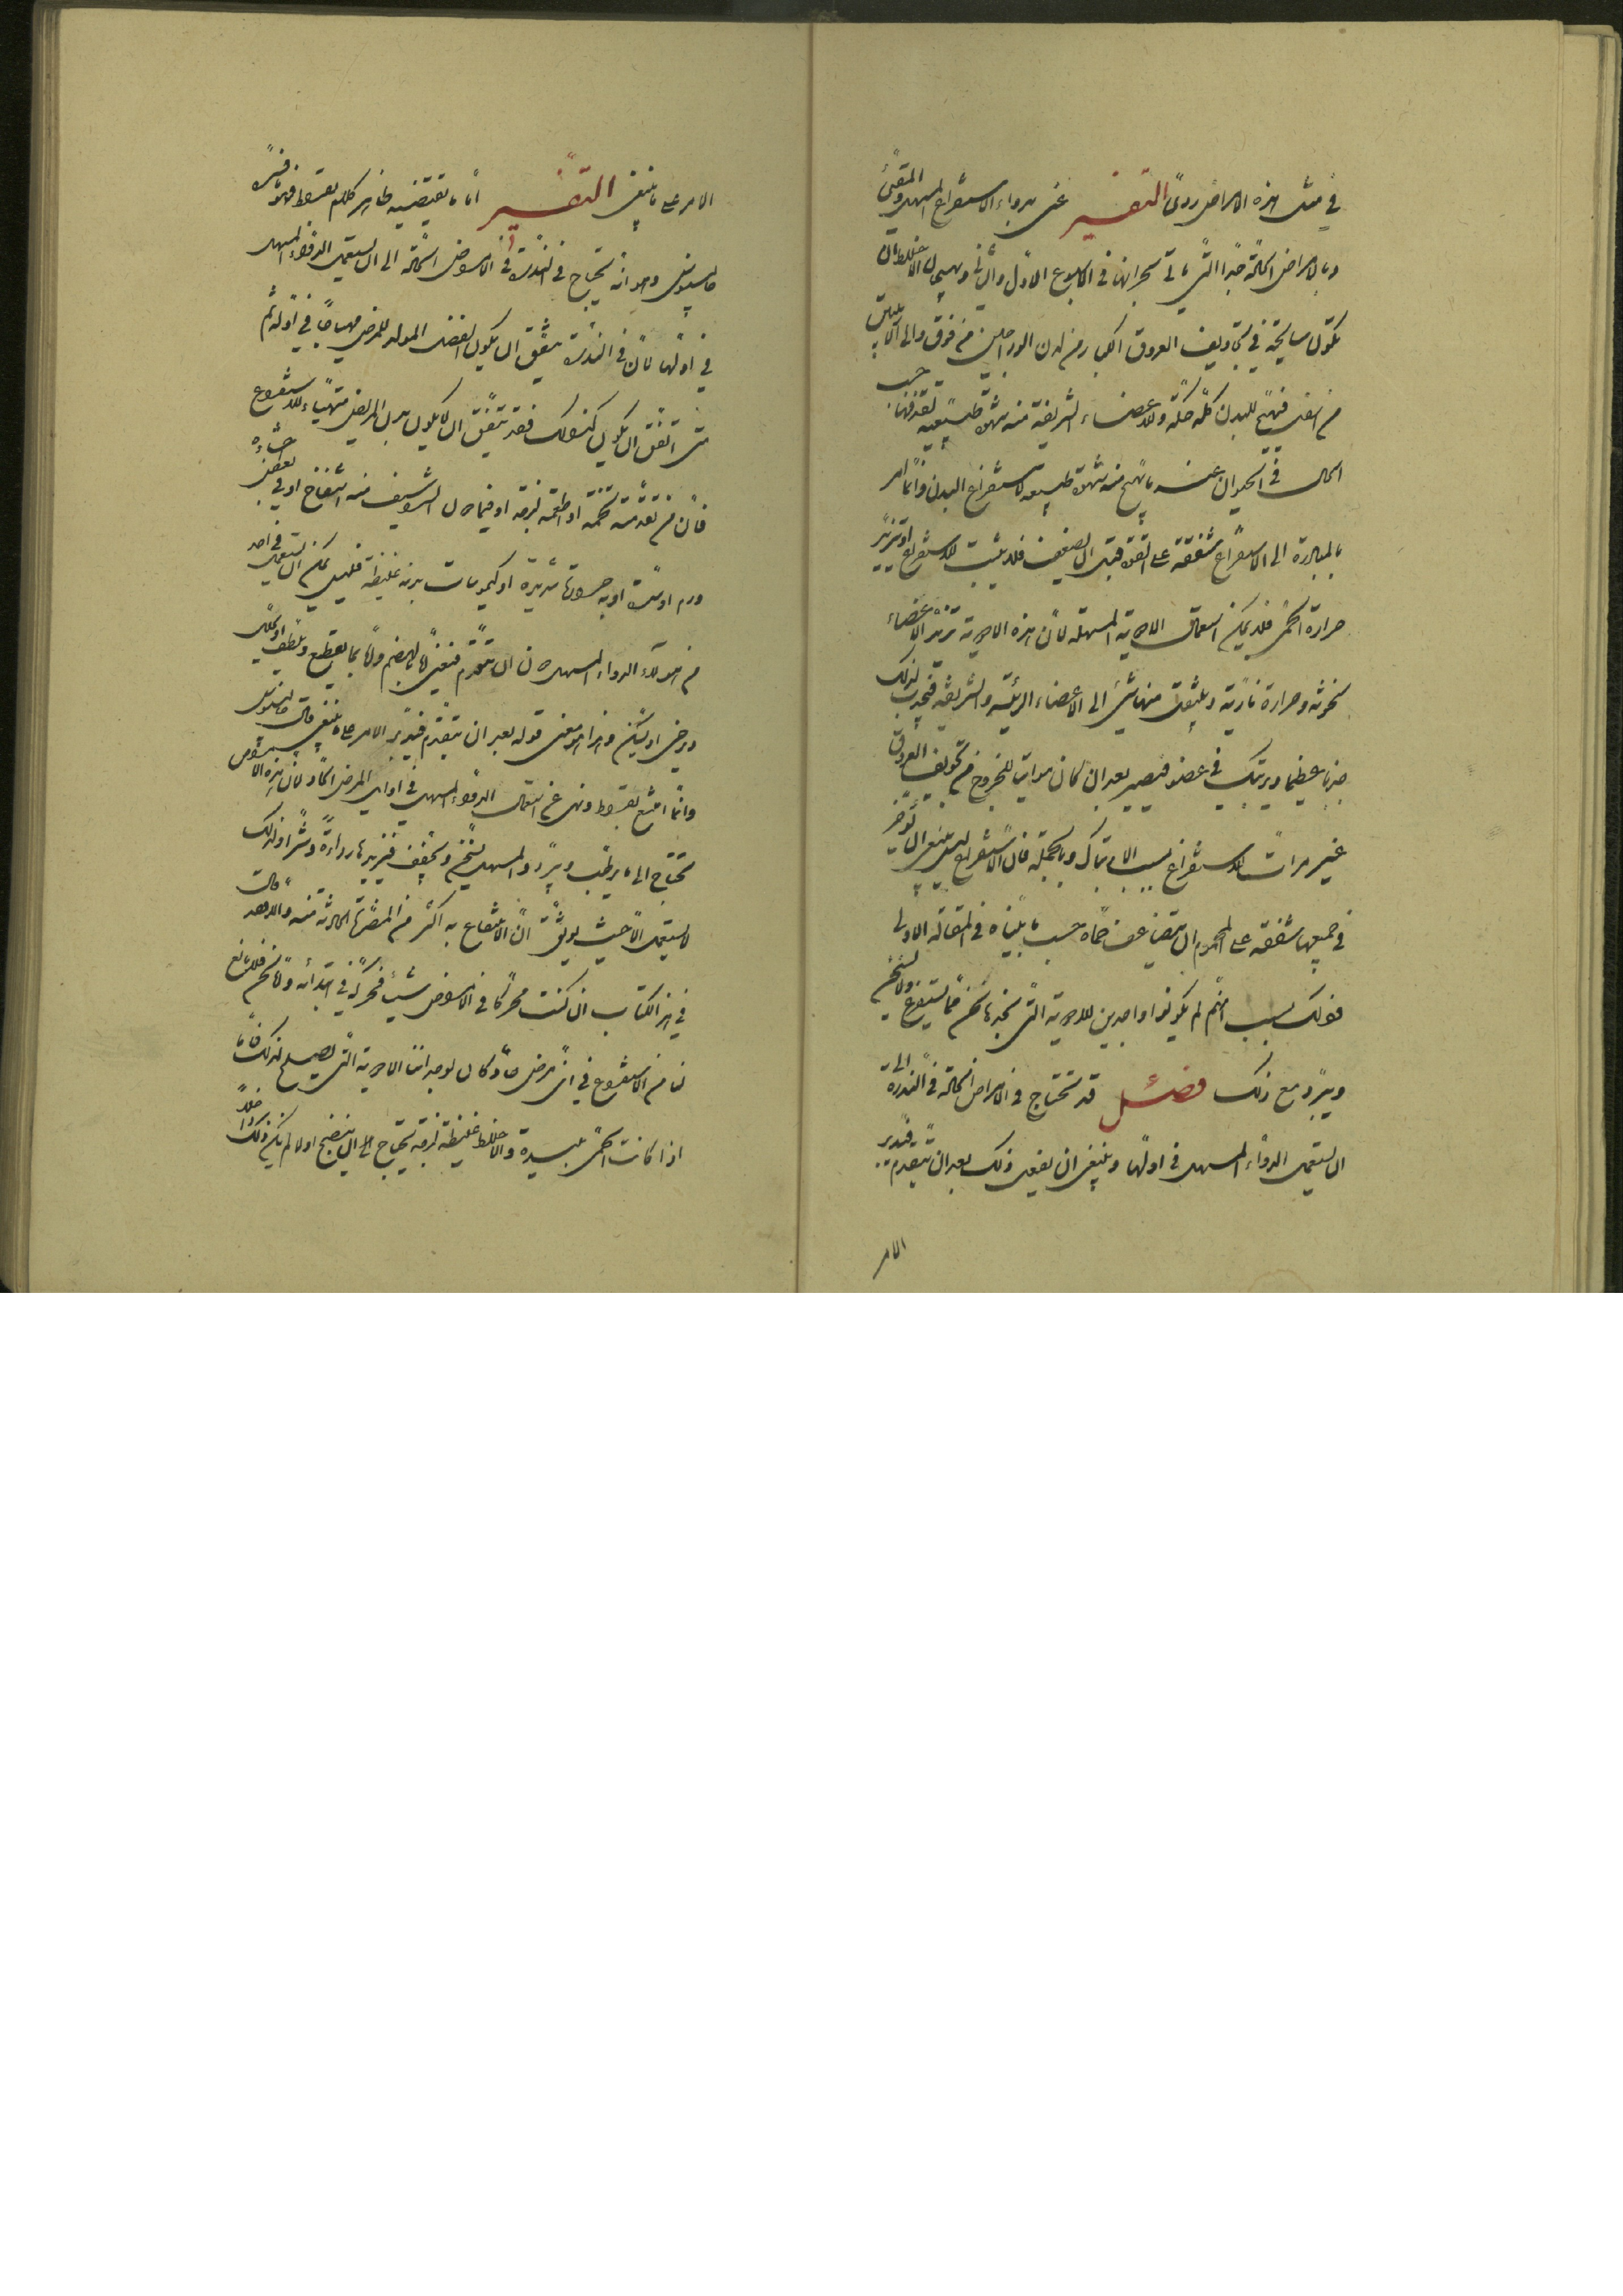 في مثل هذه الامراض ردئ التفسير عنى بدواء الاستفراغ المسهل والمقئ
وبالامراض الحادّة جدّا التي ياتي بحرانها في الاسبوع الاوّل والثاني وهيجان الاخلاط ان
تكون سايحة في تجاويف العروق الكبار من لدن الوداجين من فوق والى الاربيتين
من اسفل فيهيج للبدن كلّه حكّة وللاعضاء الشريفة منه شهوة طبيعيه لقذفها حسب
الحال في الحيوان عند ما يهيج منه شهوة طبيعيه لاستفراغ البدن وانّما امر
بالمبادرة الى الاستفراغ شفقة على القوة قبل ان تضعف فلا يثبت للاستفراغ او تتزيّد
حرارة الحمّى فلا يمكن استعمال الادوية المسهلة لانّ هذه الادوية تزيد الاعضاء
سخونة وحرارة ناريّة وينصب منها شئ الى الاعضاء الرئيسة والشريفة فيحدث لذلك
ضررا عظيما ويرتبك في عضو فيصير بعد ان كان مواتيا للخروج من تجويف العروق
غير موات للاستفراغ بسبب الارتباك وبالجملة فان الاستفراغ ليس ينبغي ان يؤخّر
في جميعها شفقة على المحموم ان يتضاعف حمّاه حسب ما بيّناه في المقالة الاولى
فذلك بسبب انّهم لم يكونوا واجدين للادوية التي نجدها نحن ممّا يستفرغ ولا يسخّن
ويبرّد مع ذلك فصل قد تحتاج في الامراض الحادّة في الندرة الى
ان تستعمل الدواء المسهل في اوّلها وينبغي ان يفعل ذلك بعد ان تتقدم فتدبر
الامر
الامر على ما ينبغي التفسير امّا ما يقتضيه ظاهر كلام بقراط فهو ما فسّره
جالينوس وهو انه يحتاج في الندرة في الامراض الحادّة الى ان يستعمل الدواء المسهل
في اوّلها لانّ في الندرة يتفق ان يكون الفضل المولد للمرض مهياجا في اوّله ثم
متى اتفق ان يكون كذلك فقد يتفق ان لا يكون بدن المريض متهيّأ للاستفراغ
فانّ من تقدّمته تخمة او اطعمة لزجة او فيما دون الشراسيف منه انتفاخ او في بعض احشاءه
ورم او تمدّد او به حرارة شديدة او كيموسات بدنه غليظة فليس يمكن ان يستعمل في احد
من هولاء الدواء المسهل دون ان يتقدّم فيعنى اولا بالهضم واما بما يقطع ويلطف او يحلل
ويرخي او يسكّن وهذا هو معنى قوله بعد ان تتقدّم فتدبّر الامر على ما ينبغي قال جالينوس
وانّما امتنع بقراط ونهى عن استعمال الدواء المسهل في اوايل المرض الحاد لانّ هذه الامراض
تحتاج الى ما يرطب ويبرّد والمسهل يسخّن ويجفف فيزيدها رداءة وشرّا ولذلك
لا يستعمل الا حيث يوثق انّ الانتفاع به اكثر من المضرّة الحادثة منه وقال
في هذا الكتاب ان كنت محركا في الامراض شيأ فحركه في ابتدائه وامّا نحن فلا مانع
لنا من الاستفراغ في اىّ مرض حادّ كان لوجداننا الادوية التي تصلح لذلك فامّا
اذا كانت الحمّى يسيرة والاخلاط غليظة لزجة تحتاج الى ان ينضج اولا ثم يكون ذلك